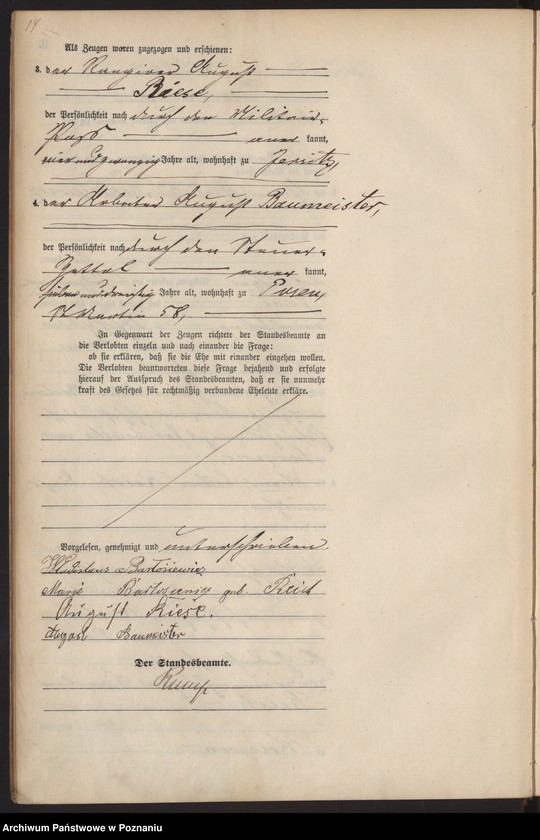 14
Als Zeugen waren zugezogen und erschienen:
3. der Rangirer August
Riese,
der Persönlichkeit nach durch den Militair-
Pass anerkannt,
vier und zwanzig Jahre alt, wohnhaft zu Jersitz,
4. der Arbeiter August Baumeister,
der Persönlichkeit nach durch den Steuer-
Zettel anerkannt,
sieben und dreißig Jahre alt, wohnhaft zu Posen,
St Martin 58,
In Gegenwart der Zeugen richtete der Standesbeamte an
die Verlobten einzeln und nach einander die Frage:
ob sie erklären, daß sie die Ehe mit einander eingehen wollen.
Die Verlobten beantworteten diese Frage bejahend und erfolgte
hierauf der Ausspruch des Standesbeamten, daß er sie nunmehr
kraft des Gesetzes für rechtmäßig verbundene Eheleute erkläre.
Vorgelesen, genehmigt und unterschrieben.
Wladislaus Bartosiewicz
Marie Bartosiewicz geb. Reich
August Riese.
August Baumeister
Der Standesbeamte.
Archiwum Państwowe w Poznaniu